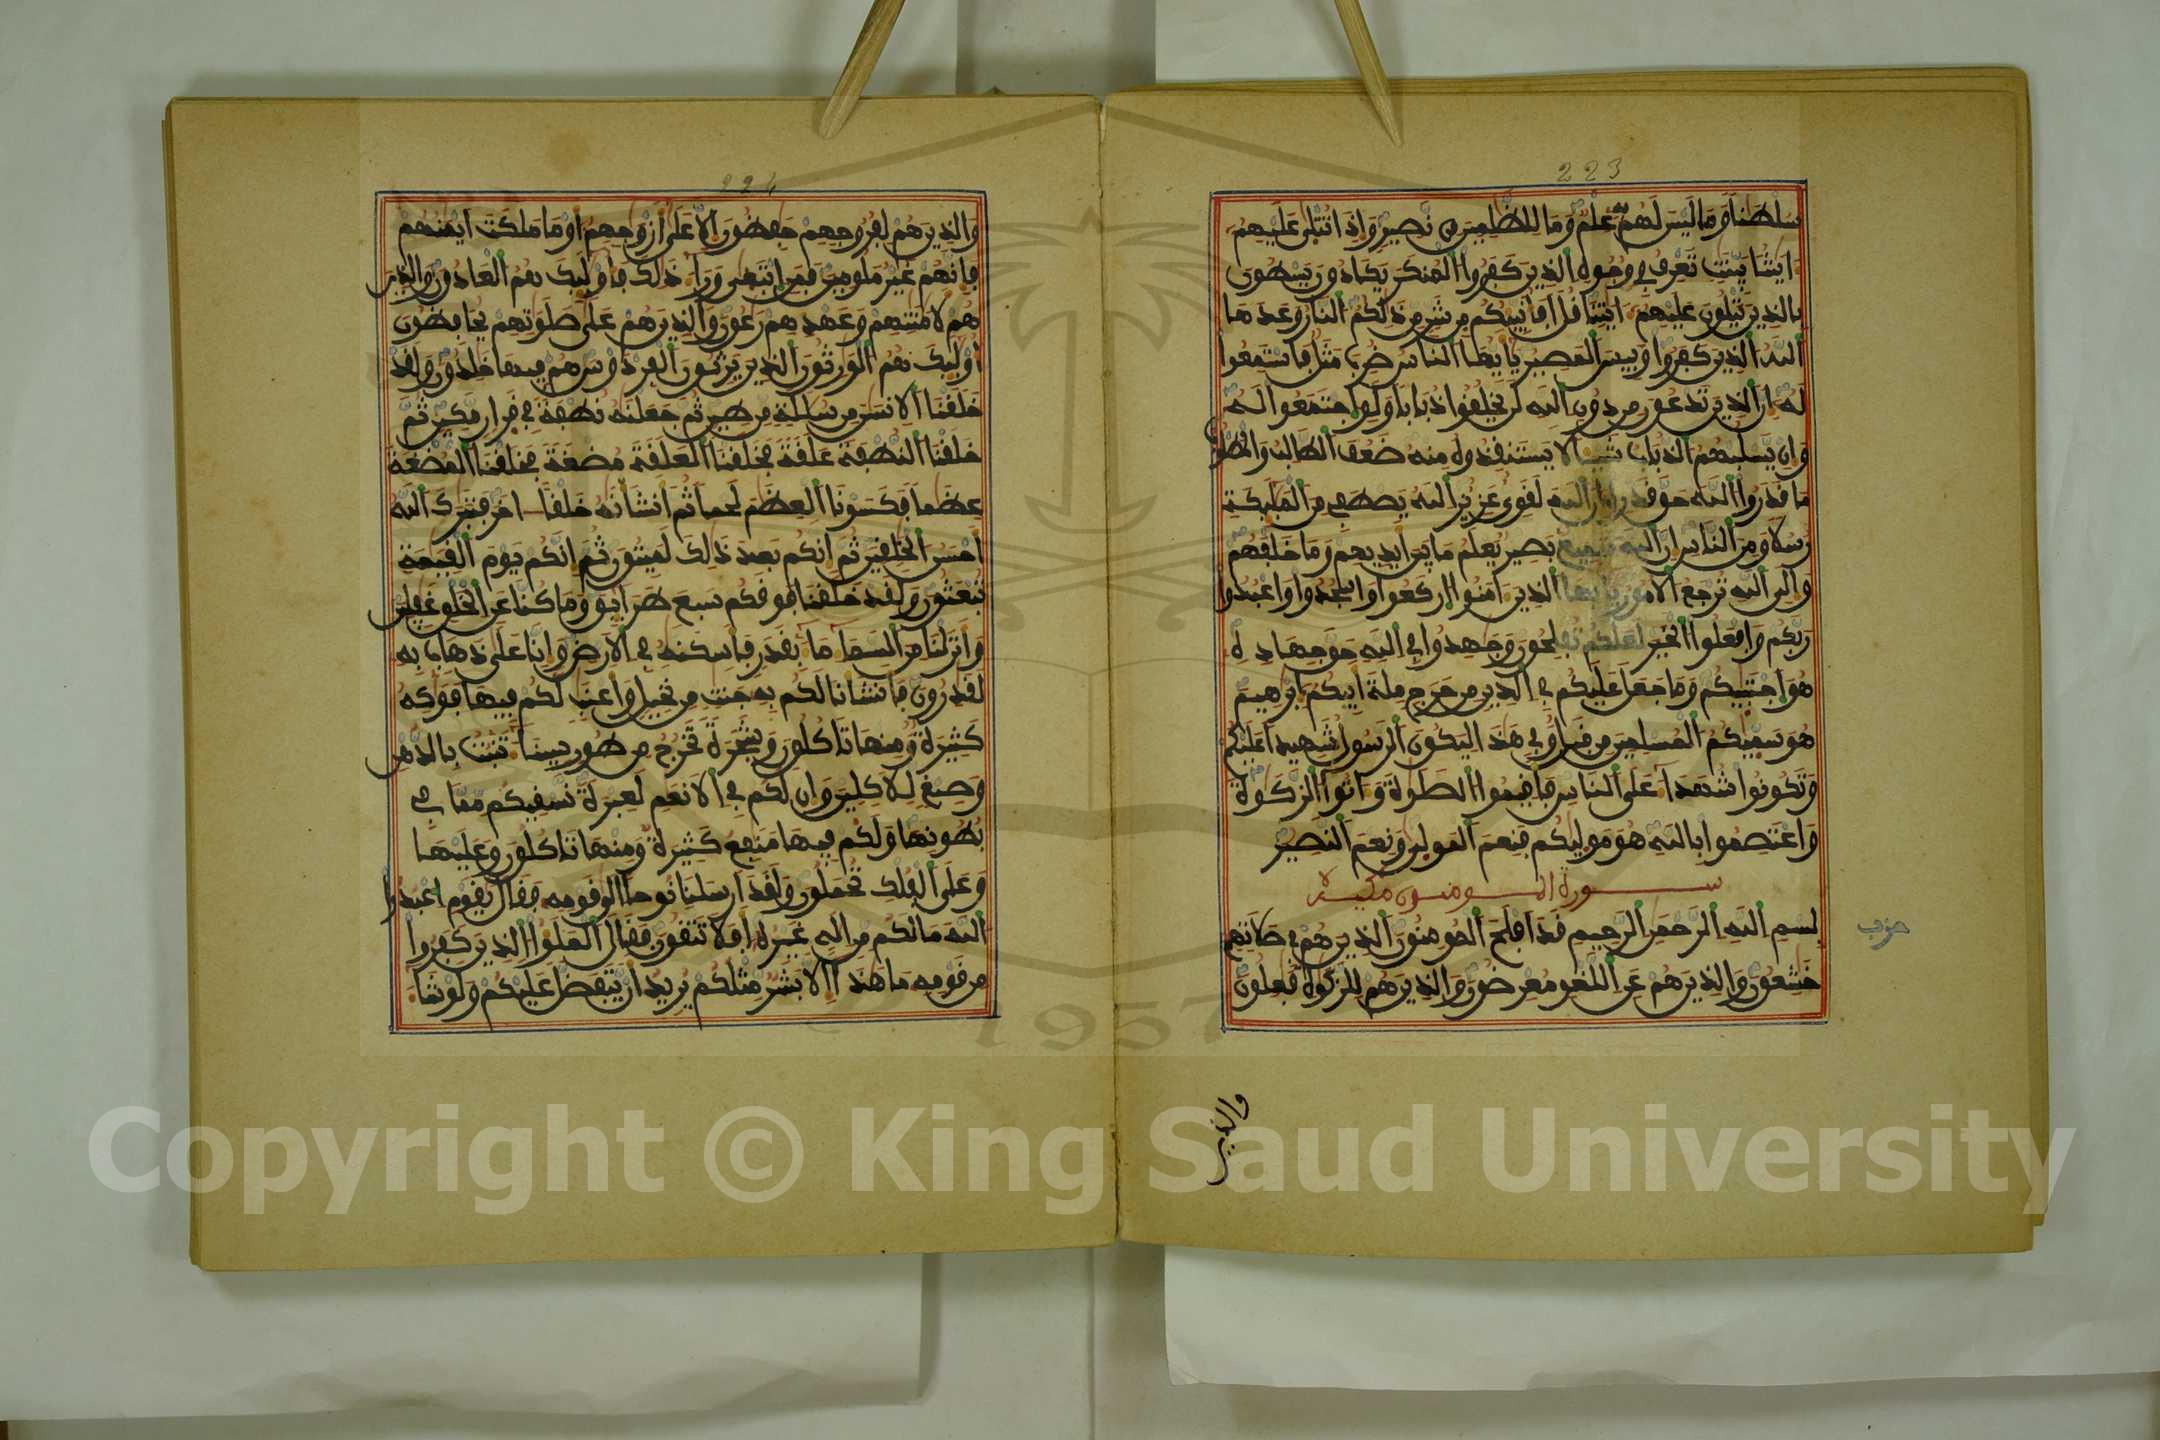 223
سلطنا وما ليس لهم به علم وما للظلمين من نصير وإذا تتلى عليهم
ءايتنا بينت تعرف في وجوه الذين كفروا المنكر يكادون يسطون
بالذين يتلون عليهم ءايتنا قل أفأنبيكم بشر من ذلكم النار وعدها
الله الذين كفروا وبيس المصير يايها الناس ضرب مثل فاستمعوا
له إن الذين تدعون من دون الله لن يخلقوا ذبابا ولو اجتمعوا له
وإن يسلبهم الذباب شيئا لا يستنقذوه منه ضعف الطالب والمطلوب
ما قدروا الله حق قدره إن الله لقوي عزيز الله يصطفي من المليكة
رسلا ومن الناس إن الله سميع بصير يعلم ما بين أيديهم وما خلفهم
وإلى الله ترجع الأمور يايها الذين ءامنوا اركعوا واسجدوا واعبدوا
ربكم وافعلوا الخير لعلكم تفلحون وجهدوا في الله حق جهاده
هو اجتبيكم وما جعل عليكم في الدين من حرج ملة أبيكم إبرهيم
هو سميكم المسلمين من قبل وفي هذا ليكون الرسول شهيدا عليكم
وتكونوا شهداء على الناس فأقيموا الصلوة وءاتوا الزكوة
واعتصموا بالله هو موليكم فنعم المولى ونعم النصير
سورة المومنون مكية
بسم الله الرحمن الرحيم قد أفلح المومنون الذين هم في صلاتهم
خشعون والذين هم عن اللغو معرضون والذين هم للزكوة فعلون
حزب
والذين
224
والذين هم لفروجهم حفظون إلا على أزوجهم أو ما ملكت أيمنهم
فإنهم غير ملومين فمن ابتغى وراء ذلك فأوليك هم العادون والذين
هم لأمنتهم وعهدهم رعون والذين هم على صلوتهم يحافظون
أوليك هم الورثون الذين يرثون الفردوس هم فيها خلدون ولقد
خلقنا الإنسن من سللة من طين ثم جعلنه نطفة في قرار مكين ثم
خلقنا النطفة علقة فخلقنا العلقة مضغة فخلقنا المضغة
عظما فكسونا العظم لحما ثم أنشأنه خلقا ءاخر فتبرك الله
أحسن الخلقين ثم إنكم بعد ذالك لميتون ثم إنكم يوم القيمة
تبعثون ولقد خلقنا فوقكم سبع طرايق وما كنا عن الخلق غفلين
وأنزلنا من السماء ماء بقدر فأسكنه في الأرض وإنا على ذهاب به
لقدرون فأنشأنا لكم به جنت من نخيل وأعنب لكم فيها فوكه
كثيرة ومنها تاكلون وشجرة تخرج من طور سيناء تنبت بالدهن
وصبغ للاكلين وإن لكم في الأنعم لعبرة نسقيكم مما في
بطونها ولكم فيها منفع كثيرة ومنها تاكلون وعليها
وعلى الفلك تحملون ولقد أرسلنا نوحا إلى قومه فقال يقوم اعبدوا
الله مالكم من إله غيره أفلا تتقون فقال الملؤا الذين كفروا
من قومه ما هذا إلا بشر مثلكم يريد أن يتفضل عليكم ولو شاء
1957
Copyright © King Saud University